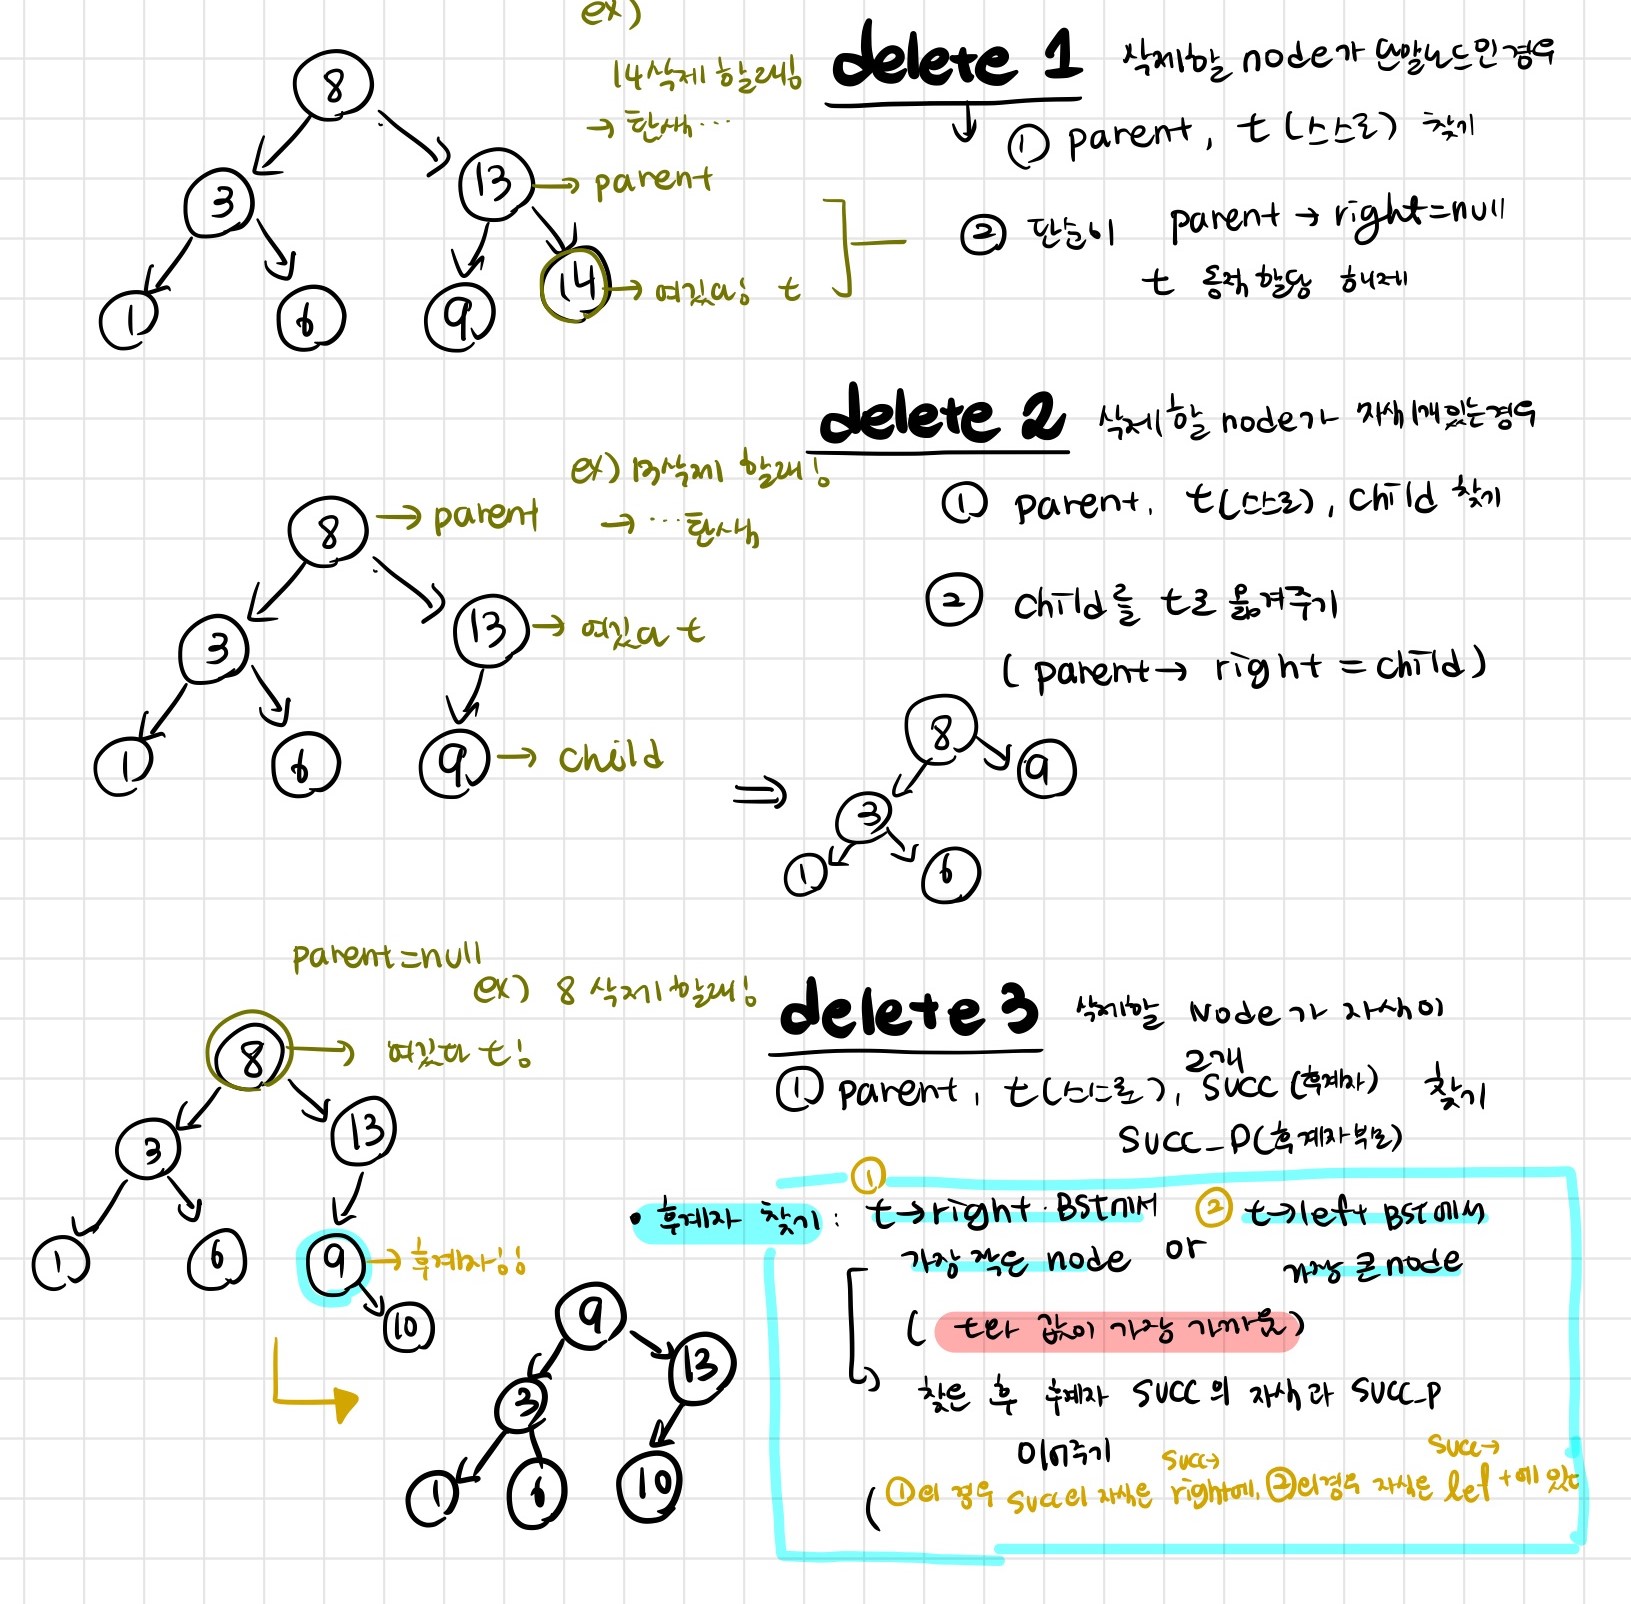 ex)
14 삭제 할래!
→ 탐색...
8
3
13 → parent
1
6
9
14 → 여깄다! t
delete 1 삭제할 node가 단말노드인 경우
↓ ① parent, t (스스로) 찾기
② 단순히 parent → right = null
t 동적 할당 해제
delete 2 삭제할 node가 자식 1개 있는 경우
ex) 13 삭제 할래!
→ ... 탐색
8 → parent
3
13 → 여깄다 t
1
6
9 → child
① parent, t(스스로), child 찾기
② child를 t로 옮겨주기
( parent → right = child )
⇒
8
9
3
1
6
parent = null
ex) 8 삭제 할래!
8 → 여깄다 t!
3
13
1
6
9 → 후계자!!
10
9
3
13
1
6
10
delete 3 삭제할 Node가 자식이
2개
① parent, t(스스로), succ (후계자) 찾기
succ_p (후계자 부모)
• 후계자 찾기 : ① t→right BST에서 ② t→left BST에서
가장 작은 node or 가장 큰 node
( t와 값이 가장 가까운 )
찾은 후 후계자 succ의 자식과 succ_p
이어주기
( ①의 경우 succ의 자식은 succ→right에, ②의 경우 자식은 succ→left에 있